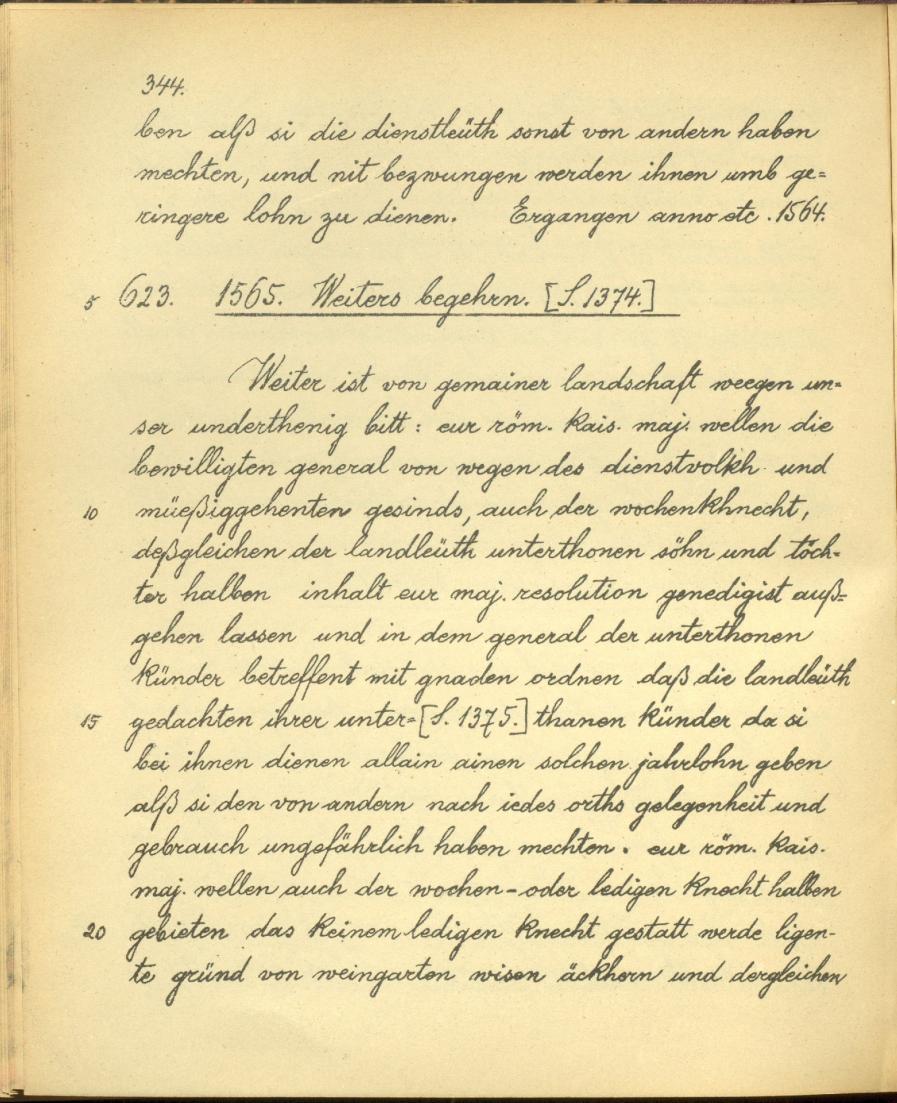 344.
ben alß si die dienstleüth sonst von andern haben
mechten, und nit bezwungen werden ihnen umb ge=
ringere lohn zu dienen. Ergangen anno etc. 1564.
5 623. 1565. Weiters begehrn. [S. 1374.]
Weiter ist von gemainer landschaft weegen un=
ser underthenig bitt: eur röm. kais. maj. wellen die
bewilligten general von wegen des dienstvolkh und
10 müeßiggehenten gesinds, auch der wochenkhnecht,
deßgleichen der landleüth unterthonen söhn und töch=
ter halben inhalt eur maj. resolution genedigist auß=
gehen lassen und in dem general der unterthonen
künder betreffent mit gnaden ordnen daß die landleüth
15 gedachten ihrer unter=[S. 1375.] thanen künder da si
bei ihnen dienen allain ainen solchen jahrlohn geben
alß si den von andern nach iedes orths gelegenheit und
gebrauch ungefährlich haben mechten. eur röm. kais.
maj. wellen auch der wochen- oder ledigen knecht halben
20 gebieten das keinem ledigen knecht gestatt werde ligen-
te gründ von weingarten wisen äckhern und dergleichen